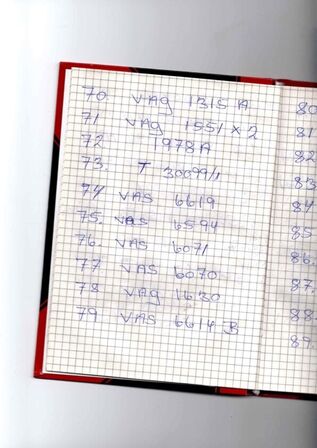 70. VAg 1315 A
71 VAg 1551 x 2
72. 1978 A
73. T 30099/1
74 VAS 6619
75. VAS 6594
76. VAS 6071
77 VAS 6070
78 VAg 1630
79 VAS 6614 B
80
81
82
83
84
85
86.
87.
88.
89.